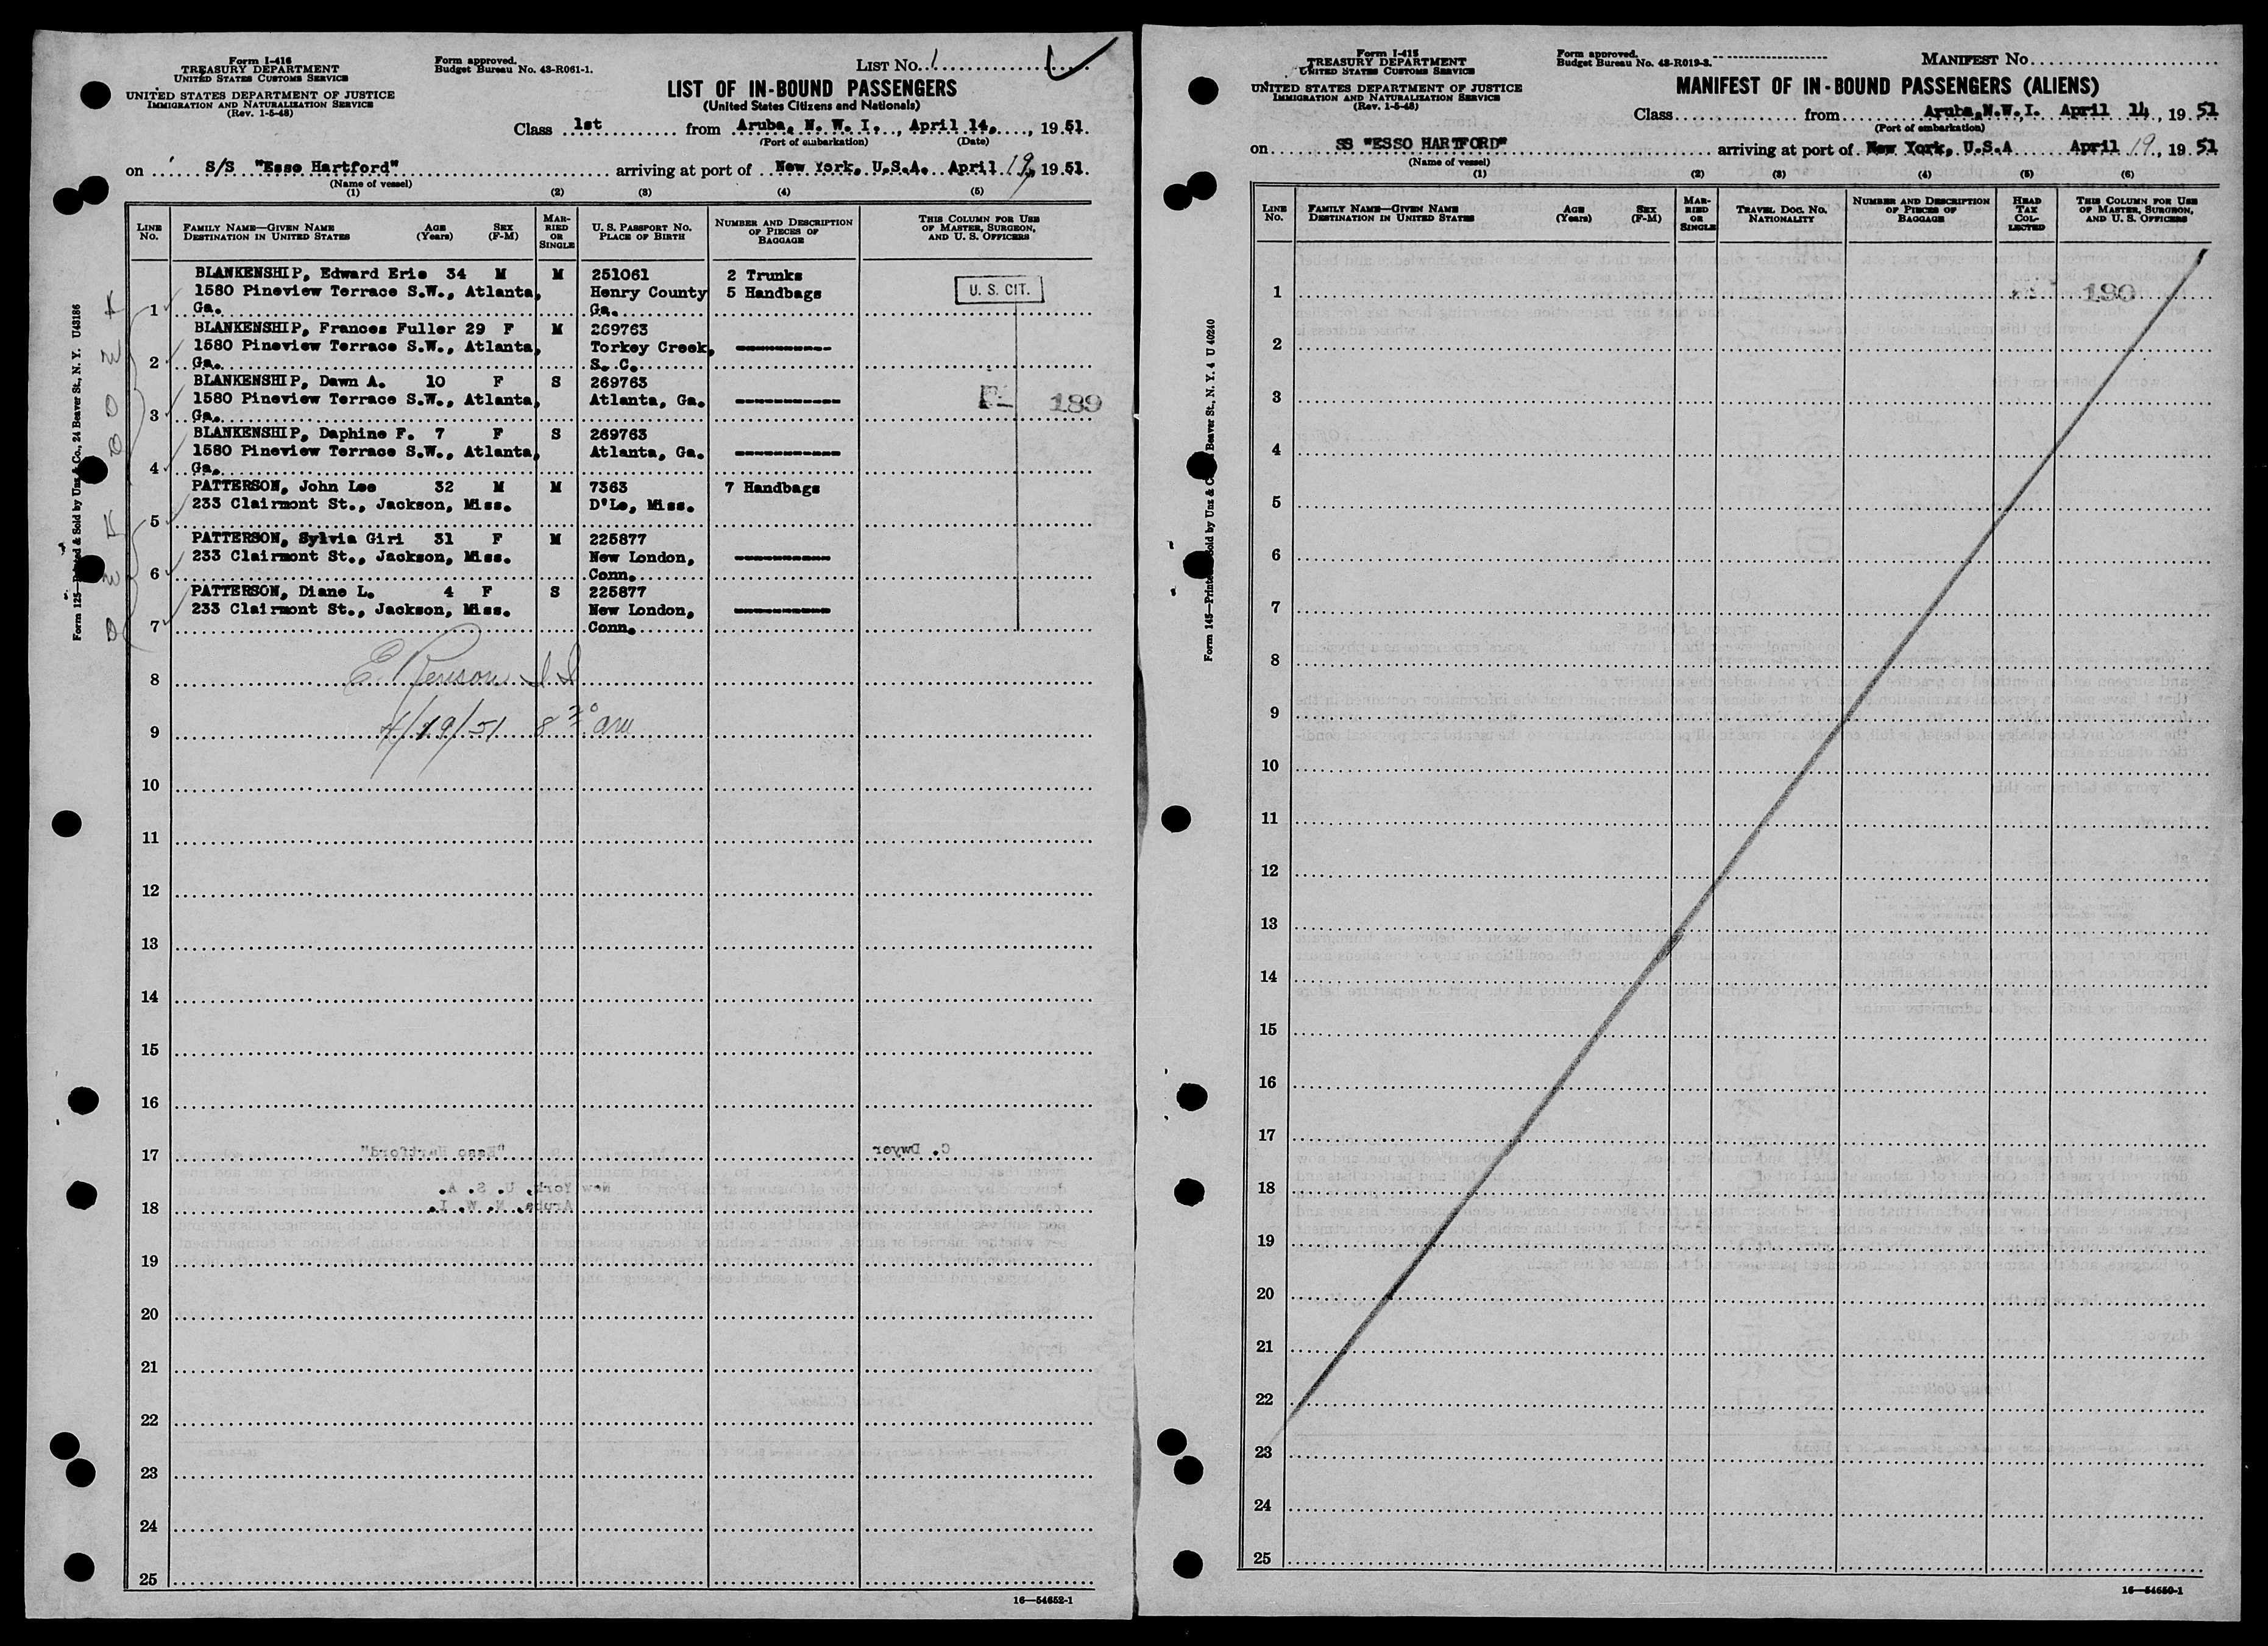 Form I-416
TREASURY DEPARTMENT
UNITED STATES CUSTOMS SERVICE
UNITED STATES DEPARTMENT OF JUSTICE
IMMIGRATION AND NATURALIZATION SERVICE
(Rev. 1-5-48)
Form approved.
Budget Bureau No. 43-R061-1.
LIST NO. 1
LIST OF IN-BOUND PASSENGERS
(United States Citizens and Nationals)
Class 1st from Aruba, N. W. I., April 14, 1951.
(Port of embarkation) (Date)
on S/S "Esso Hartford" arriving at port of New York, U.S.A. April 19, 1951.
(Name of vessel)
(1) (2) (3) (4) (5)
LINE NO.
FAMILY NAME—GIVEN NAME
DESTINATION IN UNITED STATES
AGE (Years)
SEX (F-M)
MARRIED OR SINGLE
U. S. PASSPORT NO.
PLACE OF BIRTH
NUMBER AND DESCRIPTION OF PIECES OF BAGGAGE
THIS COLUMN FOR USE OF MASTER, SURGEON, AND U. S. OFFICERS
BLANKENSHIP, Edward Erie 34 M M 251061 2 Trunks
1580 Pineview Terrace S.W., Atlanta, Henry County 5 Handbags U. S. CIT.
1 Ga. Ga.
BLANKENSHIP, Frances Fuller 29 F M 269763
1580 Pineview Terrace S.W., Atlanta, Torkey Creek, ----------
2 Ga. S. C.
BLANKENSHIP, Dawn A. 10 F S 269763
1580 Pineview Terrace S.W., Atlanta, Atlanta, Ga. ----------- 189
3 Ga.
BLANKENSHIP, Daphine F. 7 F S 269763
1580 Pineview Terrace S.W., Atlanta, Atlanta, Ga. -----------
4 Ga.
PATTERSON, John Lee 32 M M 7363 7 Handbags
233 Clairmont St., Jackson, Miss. D'Lo, Miss.
5
PATTERSON, Sylvia Giri 31 F M 225877
233 Clairmont St., Jackson, Miss. New London, ----------
6 Conn.
PATTERSON, Diane L. 4 F S 225877
233 Clairmont St., Jackson, Miss. New London, ----------
7 Conn.
8
9 4/19/51 8 30 am
10
11
12
13
14
15
16
17
18
19
20
21
22
23
24
25
16—54652-1
Form 125—Printed & Sold by Unz & Co., 24 Beaver St., N. Y. U43186
"Esso Hartford" C. Dwyer
New York, U. S. A.
Aruba, N. W. I.
Form I-415
TREASURY DEPARTMENT
UNITED STATES CUSTOMS SERVICE
UNITED STATES DEPARTMENT OF JUSTICE
IMMIGRATION AND NATURALIZATION SERVICE
(Rev. 1-5-48)
Form approved.
Budget Bureau No. 43-R019-3.
MANIFEST NO.
MANIFEST OF IN-BOUND PASSENGERS (ALIENS)
Class from Aruba,N.W.I. April 14, 1951
(Port of embarkation)
on SS "ESSO HARTFORD" arriving at port of New York, U.S.A April 19, 1951
(Name of vessel)
(1) (2) (3) (4) (5) (6)
LINE NO.
FAMILY NAME—GIVEN NAME
DESTINATION IN UNITED STATES
AGE (Years)
SEX (F-M)
MARRIED OR SINGLE
TRAVEL DOC. NO.
NATIONALITY
NUMBER AND DESCRIPTION OF PIECES OF BAGGAGE
HEAD TAX COLLECTED
THIS COLUMN FOR USE OF MASTER, SURGEON, AND U. S. OFFICERS
1 190
2
3
4
5
6
7
8
9
10
11
12
13
14
15
16
17
18
19
20
21
22
23
24
25
16—54650-1
Form 145—Printed & Sold by Unz & Co., Beaver St., N. Y. 4 U 40240